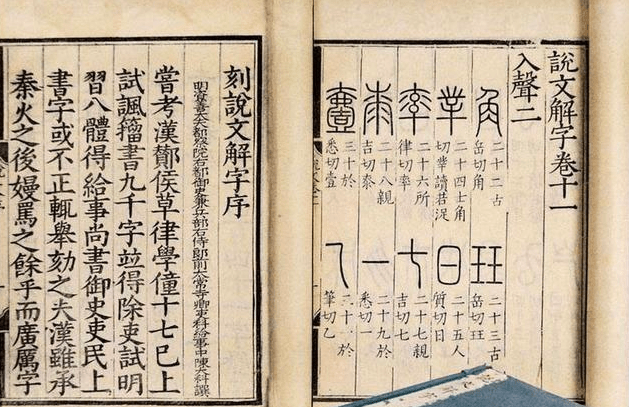 說文解字卷十一
入聲二
角
二十二古
岳切角
玨
二十三古
岳切玨
丵
二十四士角
切丵讀若浞
日
二十五人
質切日
率
二十六所
律切率
七
二十七親
吉切七
桼
二十八親
吉切桼
一
二十九於
悉切一
壹
三十於
悉切壹
乙
三十一於
筆切乙
刻說文解字序
明資善大夫都察院右都御史兼兵部右侍郎前太常寺卿吏科給事中陳大科撰
嘗考漢酇侯草律學僮十七已上
試諷籀書九千字並得除吏試明
習八體得給事尚書御史吏民上
書字或不正輒舉劾之夫漢雖承
秦火之後嫚罵之餘乎而廣厲字